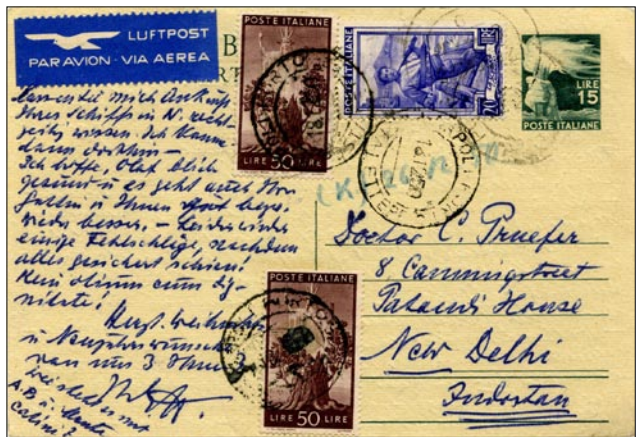 LUFTPOST
PAR AVION - VIA AEREA
POSTE ITALIANE
LIRE 50 LIRE
POSTE ITALIANE
20 LIRE
LIRE
15
POSTE ITALIANE
Lassen Sie mich Ankunft
Ihres Schiffs in N. recht-
zeitig wissen. Ich komme
dann dorthin -
Ich hoffe, Olaf blieb
gesund u es geht auch Ihrer
Gattin u Ihnen
wieder besser, - leider wieder
einige Fehlschläge, nachdem
alles gesichert schien!
Kein otium cum dig-
nitate!
Herzl. Weihnachts
u Neujahrswünsche
von uns 3 Ihnen 3
Doctor C. Pruefer
8 Canningstreet
Pataudi House
New Delhi
Indostan
POSTE ITALIANE
LIRE 50 LIRE